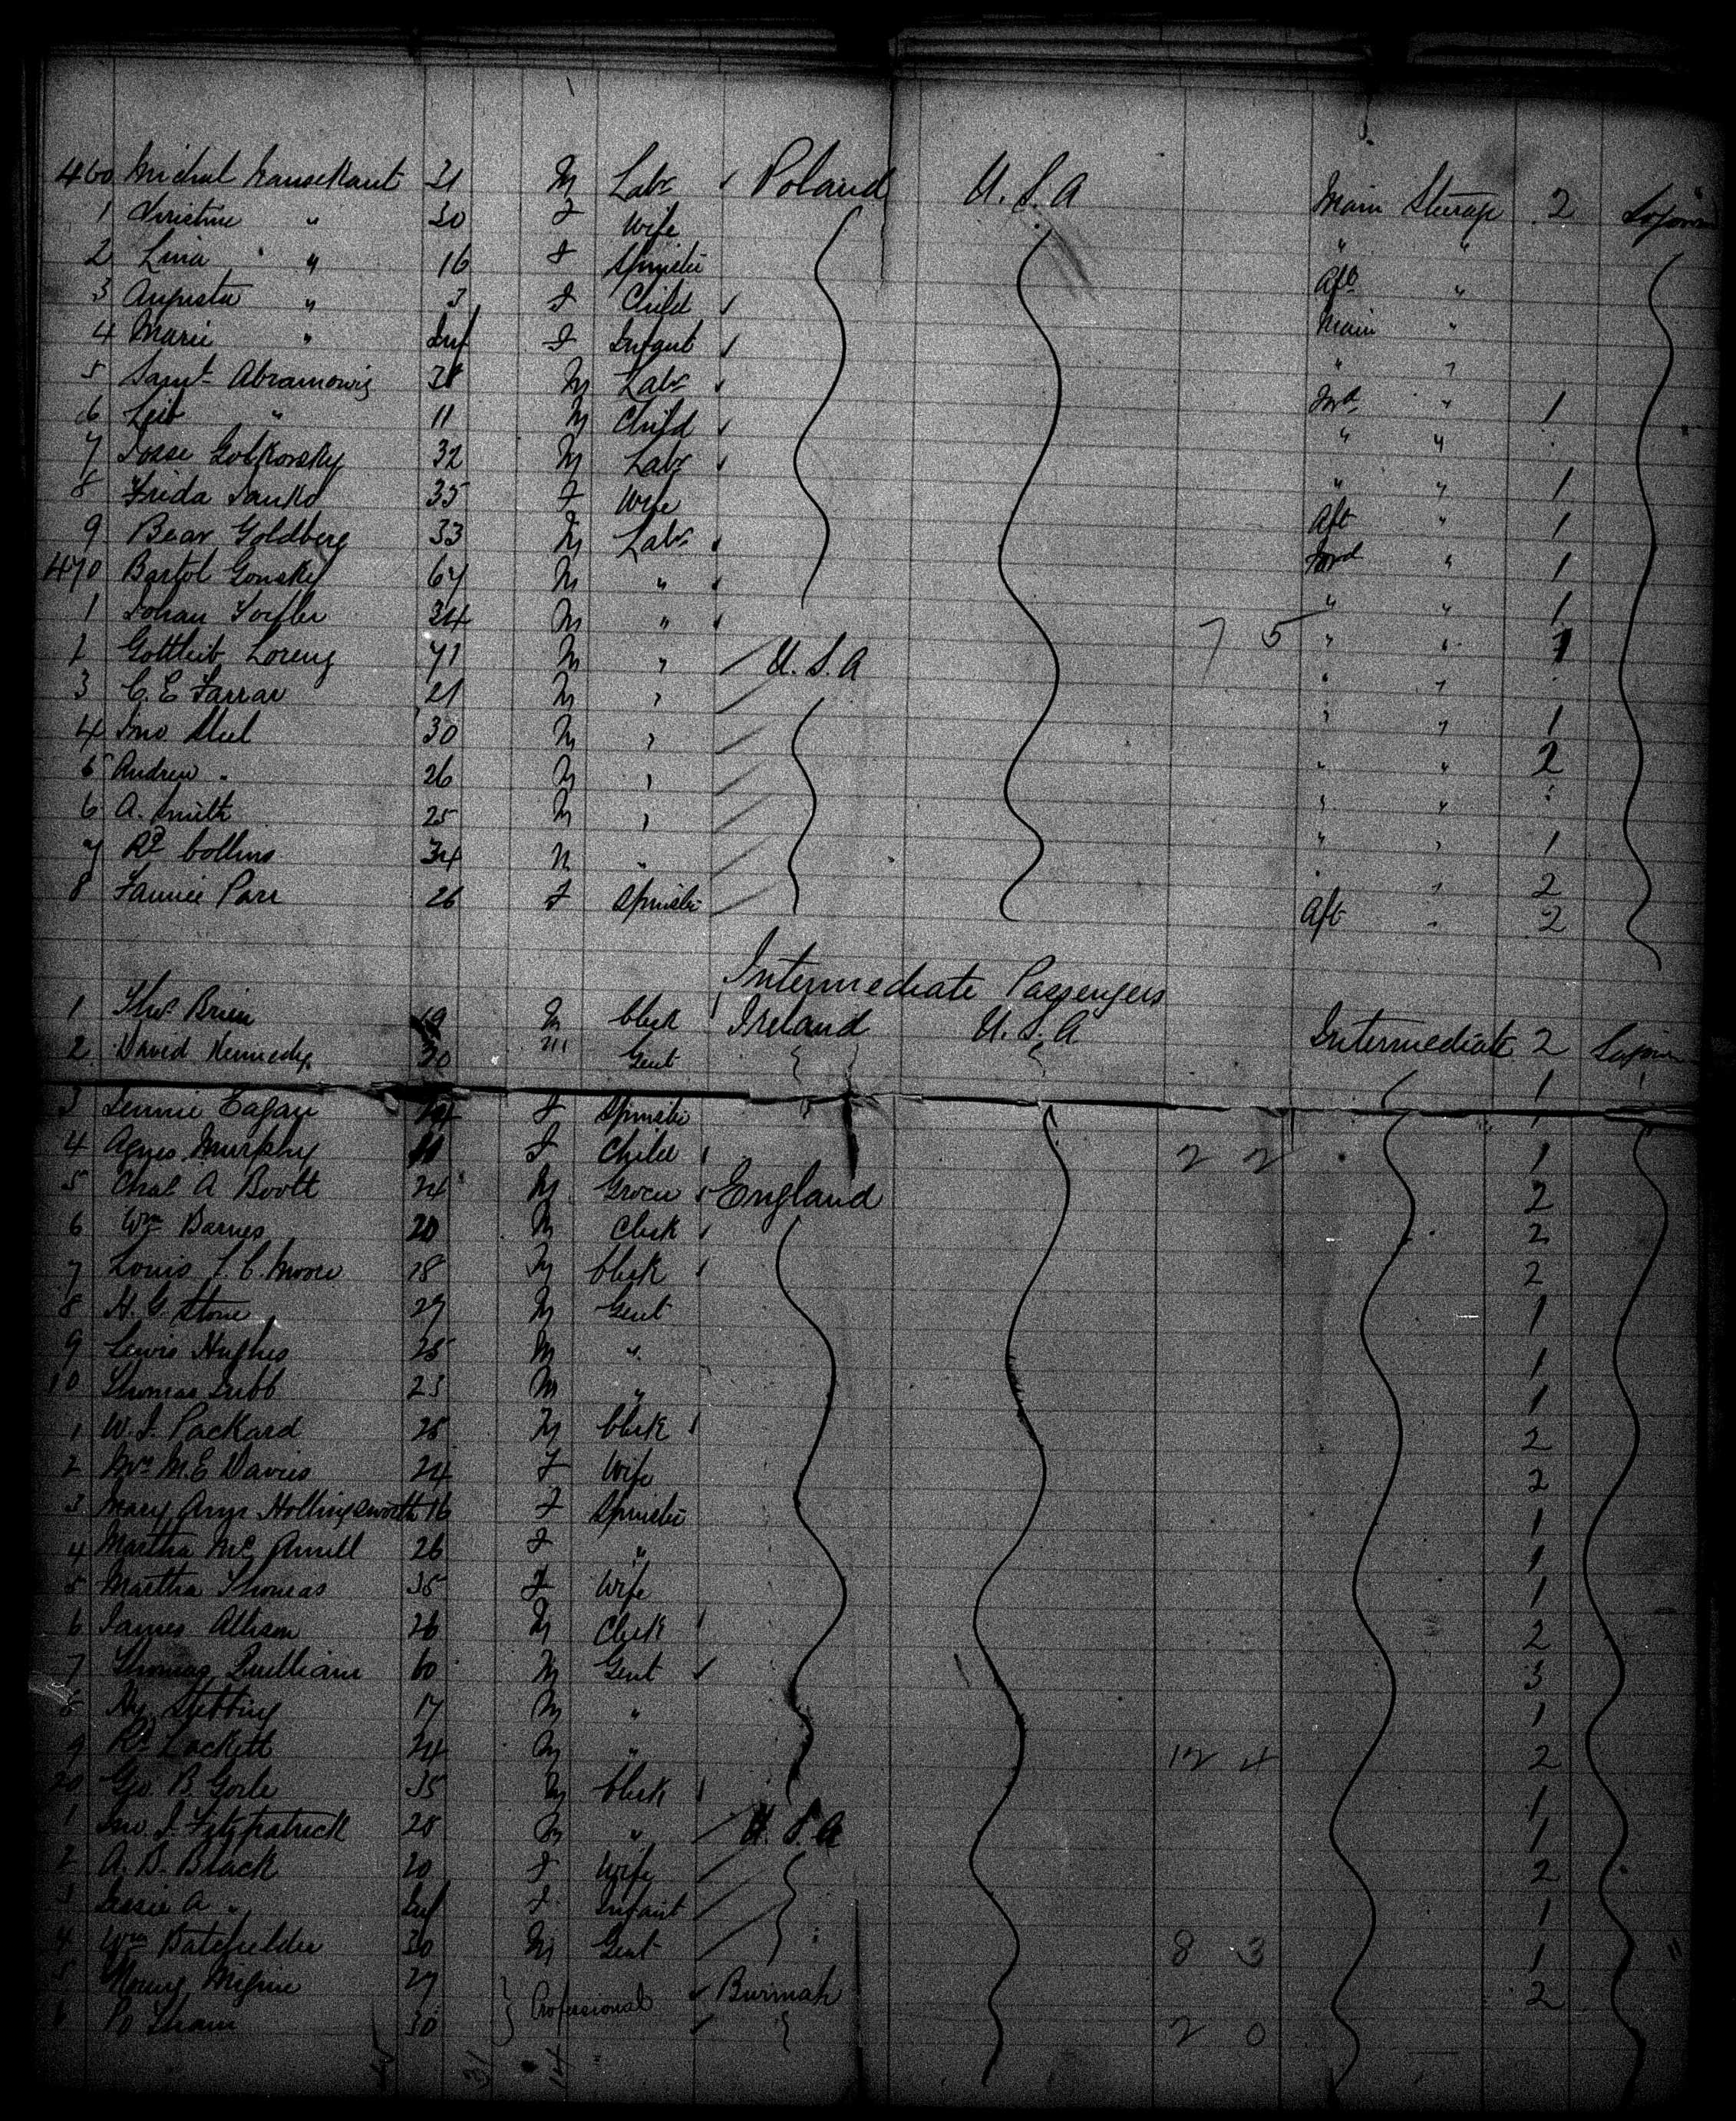 460 Michal 31 M Labr Poland U.S.A Main Steerage 2
1 Christine " 30 F Wife " "
2 Lina " 16 F Spinster Aft "
3 Augusta " 3 F Child Main "
4 Marie " Inf F Infant " "
5 Saml Abramowig M Labr Fwd " 1
6 Leib " 11 M Child " "
7 Josse Golkorsky 32 M Labr " " 1
8 Frida Janko 35 F Wife Aft " 1
9 Bear Goldberg 33 M Labr Forwd " 1
470 Bartol Gonsky 67 M " " " 1
1 Johan 34 M " 7 5 " " 1
2 Gottleib Lorenz 71 M " U.S.A " "
3 C. E Farrar 21 M " " " 1
4 Jno Steel 30 M " " " 2
5 Andrew " 26 M " " "
6 A. Smith 25 M " " " 1
7 Rd Collins 34 M " " " 2
8 Fannie Parr 26 F Spinster Aft " 2
Intermediate Passengers
1 Thos Brien 19 M Clerk Ireland U.S.A Intermediate 2
2 David Kennedy 30 M Gent 1
3 Jennie Eagan F Spinster 1
4 Agnes Murphy 11 F Child 2 2 1
5 Chas A Boott 24 M Grocer England 2
6 Wm Barnes 20 M Clerk 2
7 Louis T. C. Moore 28 M Clerk 2
8 H. G. Stone 27 M Gent 1
9 Lewis Hughes 25 M " 1
10 Thomas Jubb 23 M " 1
1 W. J. Packard 28 M Clerk 2
2 Mrs M. E Davies 24 F Wife 2
3 Mary Ann Hollingsworth 16 F Spinster 1
4 Martha Mc Annell 26 F " 1
5 Martha Thomas 35 F Wife 1
6 James Allison 26 M Clerk 2
7 Thomas Quilliam 60 M Gent 3
8 Hy Stebbing 17 M " 1
9 Rd Lockett 24 M " 12 4 2
20 Geo. B. Gorle 35 M Clerk 1
1 Jno. J. Fitzpatrick 28 M " U.S.A 1
2 A. B. Black 20 F Wife 2
3 Jessie A " Inf F Infant 1
4 Wm Batefielder 30 M Gent 8 3 1
5 Moung 27 Professional Burmah 2
6 Po 30 2 0